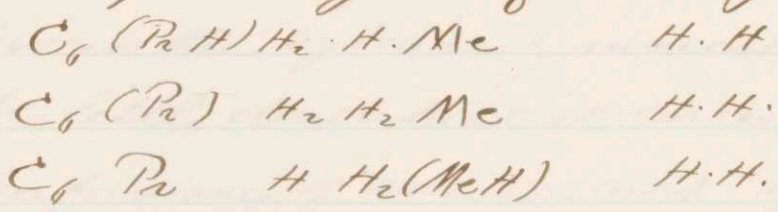 C₆ (Pr H) H₂ · H · Me H · H
C₆ (Pr) H₂ H₂ Me H · H ·
C₆ Pr H H₂ (MeH) H · H.